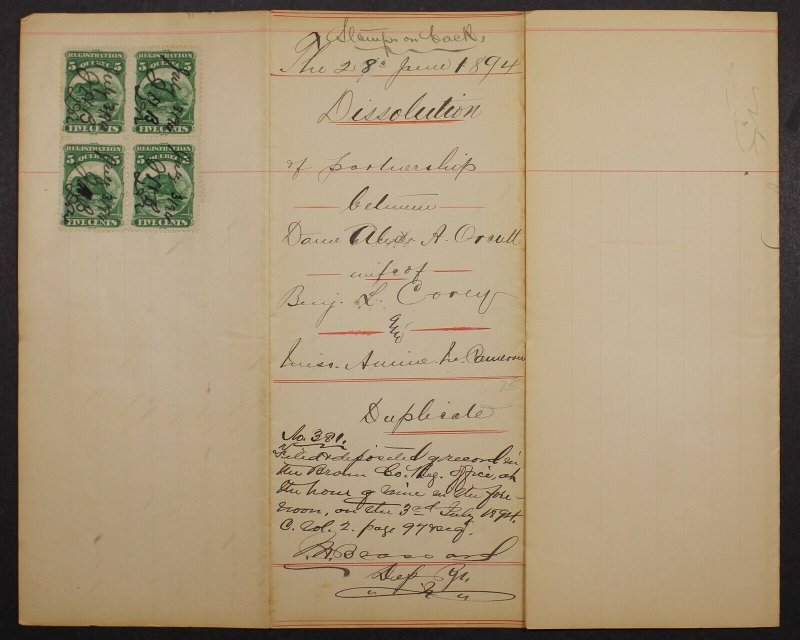 REGISTRATION
5 QUEBEC 5
FIVE CENTS
REGISTRATION
5 QUEBEC 5
FIVE CENTS
REGISTRATION
5 QUEBEC 5
FIVE CENTS
REGISTRATION
5 QUEBEC 5
FIVE CENTS
Stamps on back.
The 28th June 1894
Dissolution
of partnership
between
Dame A. Orcutt
wife of
Benj. L. Corey
and
Miss. M. Cameron
Duplicate
No. 381.
Filed & deposited of record in
the Brome Co. Reg. office, at
the hour of nine in the fore-
noon, on the 3rd July 1894,
C. Vol. 2. page 97 & seq.
Dep.